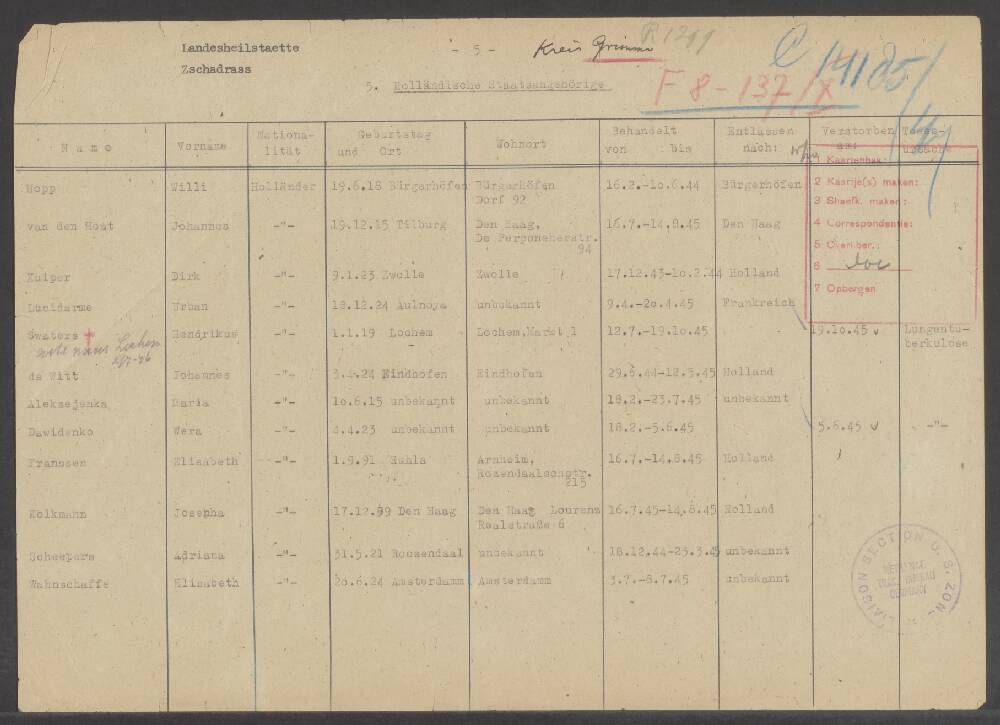 Landesheilstaette
Zschadrass
- 5 -
Kreis Grimma
R 1299
5. Holländische Staatsangehörige
F 8 - 137/X
C
Name | Vorname | Nationa-lität | Geburtstag und Ort | Wohnort | Behandelt von bis | Entlassen nach: | Verstorben am: | Todes-ursache
1 Kaartenbak:
2 Kaartje(s) maken:
3 Shaefk. maken:
4 Correspondentie:
5 Overl.ber.:
6
7 Opbergen
Hopp Willi Holländer 19.6.18 Bürgerhöfen Bürgerhöfen 16.2.-10.6.44 Bürgerhöfen
Dorf 92
van den Hout Johannes -"- 19.12.15 Tilburg Den Haag, 16.7.-14.8.45 Den Haag
De Perponcherstr.
94
Kuiper Dirk -"- 9.1.23 Zwolle Zwolle 17.12.43-10.2.44 Holland
Lucidarme Urban -"- 18.12.24 Aulnoye unbekannt 9.4.-20.4.45 Frankreich
Swaters Hendrikus -"- 1.1.19 Lochem Lochem, Markt 1 12.7.-19.10.45 19.10.45 Lungentu-
berkulose
acte naar Lochem
de Witt Johannes -"- 3.4.24 Eindhofen Eindhofen 29.6.44-12.5.45 Holland
Aleksejenka Maria -"- 10.6.15 unbekannt unbekannt 18.2.-23.7.45 unbekannt
Dawidenko Wera -"- 4.4.23 unbekannt unbekannt 18.2.-5.6.45 5.6.45 -"-
Franssen Elisabeth -"- 1.9.91 Ruhla Arnheim, 16.7.-14.8.45 Holland
Rozendaalschstr.
215
Kolkmann Josepha -"- 17.12.99 Den Haag Den Haag Lourenz 16.7.45-14.8.45 Holland
Realstraße 6
Scheepers Adriana -"- 31.5.21 Roosendaal unbekannt 18.12.44-23.3.45 unbekannt
Wahnschaffe Elisabeth -"- 20.6.24 Amsterdamm Amsterdamm 3.7.-8.7.45 unbekannt
LIAISON SECTION U. S. ZONE
GERMANY